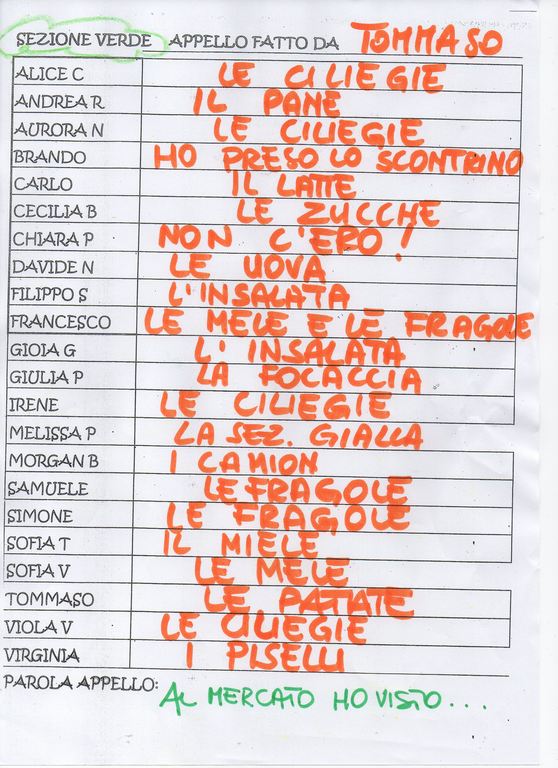 SEZIONE VERDE APPELLO FATTO DA TOMMASO
ALICE C LE CILIEGIE
ANDREA R IL PANE
AURORA N LE CILIEGIE
BRANDO HO PRESO LO SCONTRINO
CARLO IL LATTE
CECILIA B LE ZUCCHE
CHIARA P NON C'ERO!
DAVIDE N LE UOVA
FILIPPO S L'INSALATA
FRANCESCO LE MELE E LE FRAGOLE
GIOIA G L'INSALATA
GIULIA P LA FOCACCIA
IRENE LE CILIEGIE
MELISSA P LA SEZ. GIALLA
MORGAN B I CAMION
SAMUELE LE FRAGOLE
SIMONE LE FRAGOLE
SOFIA T IL MIELE
SOFIA V LE MELE
TOMMASO LE PATATE
VIOLA V LE CILIEGIE
VIRGINIA I PISELLI
PAROLA APPELLO: AL MERCATO HO VISTO...